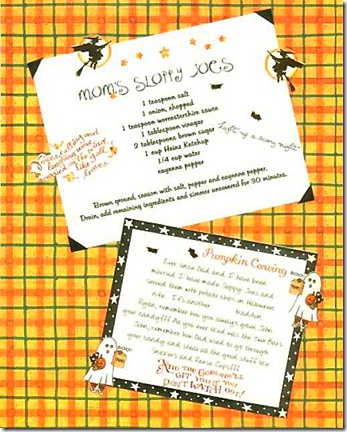 MOM'S SLOPPY JOES
1 teaspoon salt
1 onion, chopped
1 teaspoon worcestershire sauce
1 tablespoon vinegar
2 tablespoons brown sugar
1 cup Heinz Ketchup
1/4 cup water
cayenne pepper
Brown ground, season with salt, pepper and cayenne pepper.
Drain, add remaining ingredients and simmer uncovered for 30 minutes.
Pumpkin Carving
Ever since Dad and I have been
married I have made Sloppy Joes and
served them with potato chips on Halloween
nite. It's another tradition
Ryan, remember how you always gave John
your candy!!! As you ever liked was the Two Bars.
John, remember how Dad used to go through
your candy and steal all the good stuff like
Snickers and Reese Cups!!!
AND THE GOBLINS'LL
GIT YOU IF YOU
DON'T WATCH OUT!
BOO!
BOO!